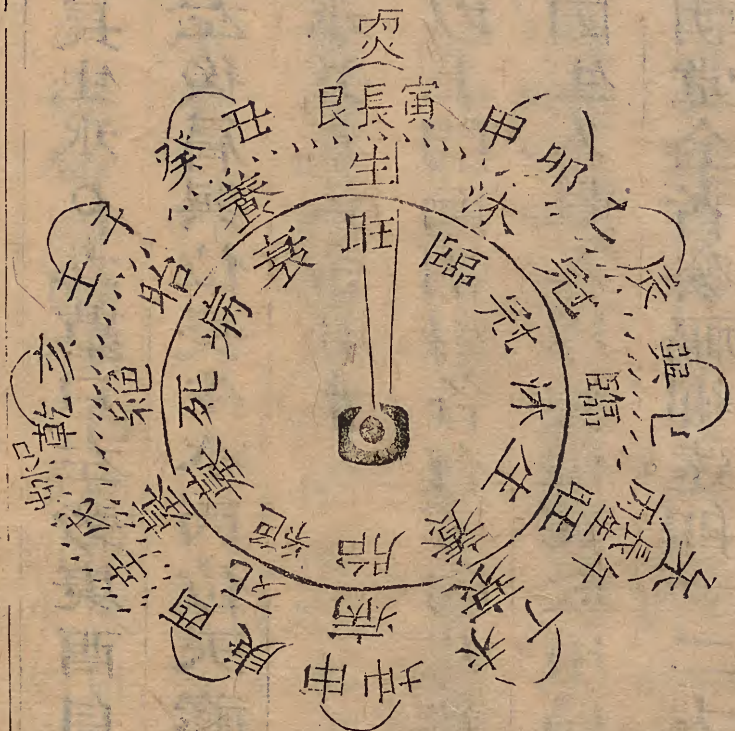 艮長寅
甲卯
乙辰
巽巳
丙午
丁未
坤申
庚酉
辛戌
乾亥
壬子
癸丑
生
沐
冠
臨
旺
衰
病
死
墓
絕
胎
養
旺
臨
冠
沐
生
養
胎
絕
墓
死
病
衰